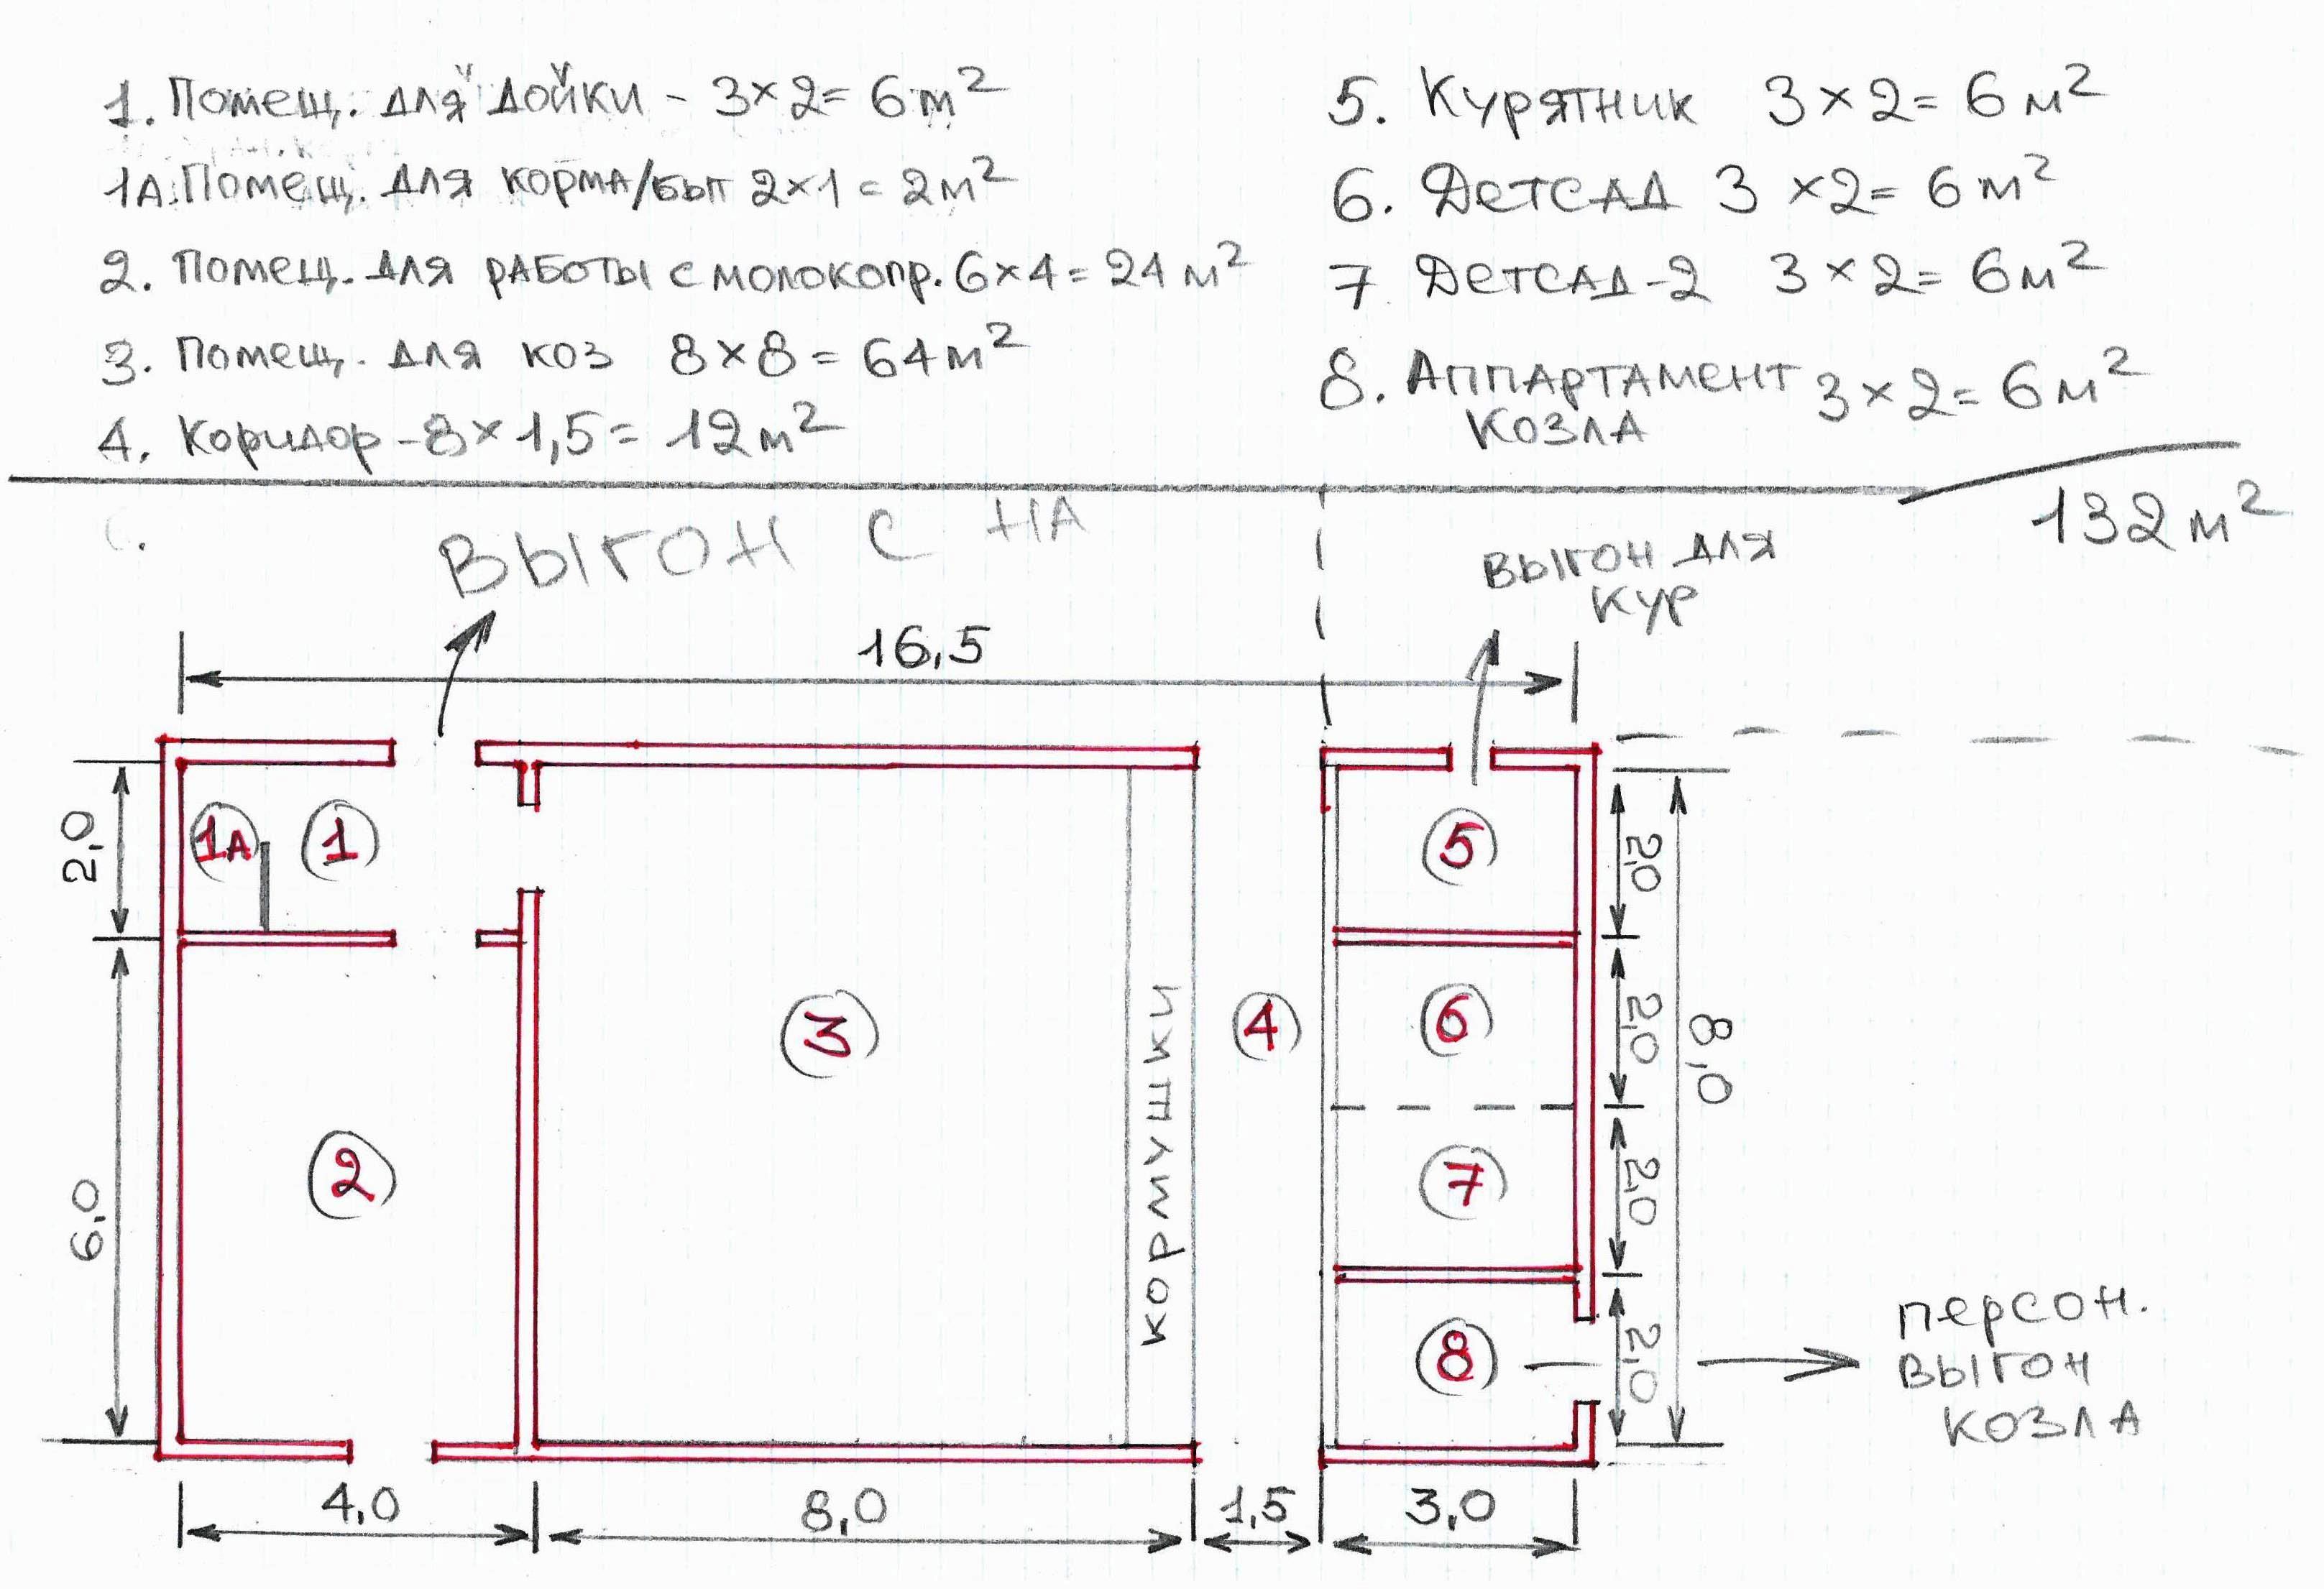 1. Помещ. для дойки - 3×2= 6м²
1А. Помещ. для корма/быт 2×1=2м²
2. Помещ. для работы с молокопр. 6×4=24м²
3. Помещ. для коз 8×8=64м²
4. Коридор -8×1,5= 12м²
5. Курятник 3×2=6м²
6. Детсад 3×2=6м²
7 Детсад-2 3×2=6м²
8. Аппартамент 3×2=6м²
козла
132м²
выгон с на
выгон для
кур
16,5
2,0
1А
1
5
2,0
6,0
2
3
кормушки
4
6
2,0
8,0
7
2,0
8
2,0
персон.
выгон
козла
4,0
8,0
1,5
3,0